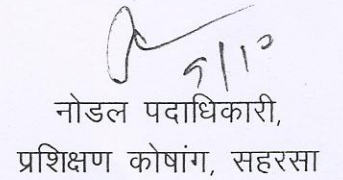 नोडल पदाधिकारी,
प्रशिक्षण कोषांग, सहरसा